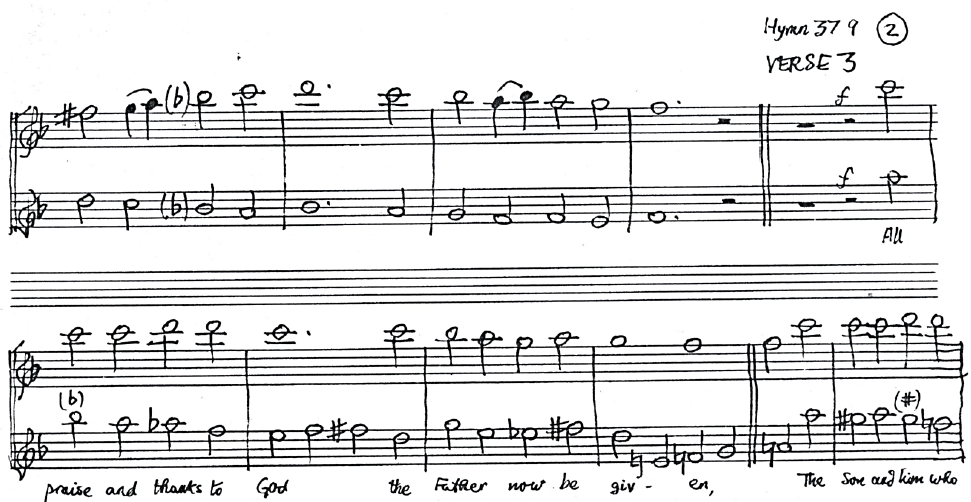 Hymn 379 (2)
VERSE 3
(b)
f
(b)
f
All
(b)
(#)
praise and thanks to God the Father now be giv - en, The Son and him who